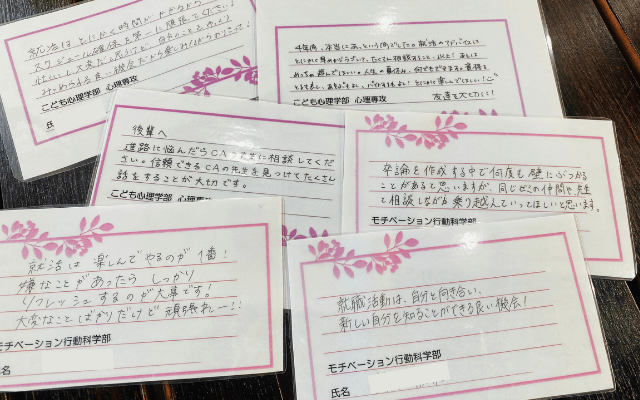 就活はとにかく時間が
スケジュール確保を第一に頑張ってください！
忙しい
こども心理学部 心理専攻
氏
4年間、本当にあっという間でした。就活のアドバイスは
とにかく早めからうごいて、たくさん相談すること
めっちゃ遊んでほしい。人生の夏休み、何でもできます。
とにかく楽しんでほしい！
友達を大切に！
こども心理学部 心理専攻
後輩へ
進路に悩んだらCAの先生に相談してくだ
さい。信頼できるCAの先生を見つけてたくさん
話をすることが大切です。
こども心理学部 心理専攻
卒論を作成する中で何度も壁にぶつかる
ことがあると思いますが、同じゼミの仲間や先生
と相談しながら乗り越えていってほしいと思います。
モチベーション行動科学部
就活は楽しんでやるのが1番！
嫌なことがあったらしっかり
リフレッシュするのが大事です！
大変なことばかりだけど頑張れー!!
モチベーション行動科学部
就職活動は、自分と向き合い、
新しい自分を知ることができる良い機会！
モチベーション行動科学部
氏名